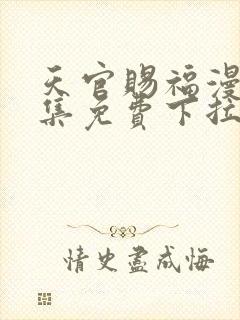 天官賜福漫
集免費下拉
情史盡成悔